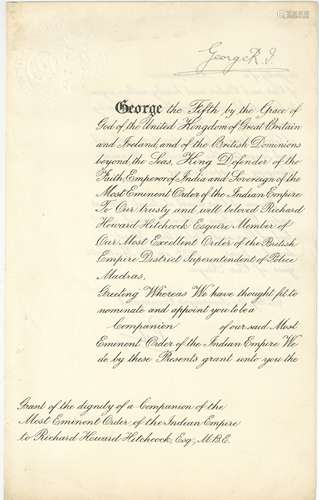 George R. I.
George the Fifth by the Grace of
God of the United Kingdom of Great Britain
and Ireland, and of the British Dominions
beyond the Seas, King Defender of the
Faith, Emperor of India and Sovereign of the
Most Eminent Order of the Indian Empire
To Our trusty and well beloved Richard
Howard Hitchcock Esquire Member of
Our Most Excellent Order of the British
Empire District Superintendent of Police
Madras,
Greeting Whereas We have thought fit to
nominate and appoint you to be a
Companion of our said Most
Eminent Order of the Indian Empire We
do by these Presents grant unto you the
Grant of the dignity of a Companion of the
Most Eminent Order of the Indian Empire
to Richard Howard Hitchcock, Esq, M.B.E.